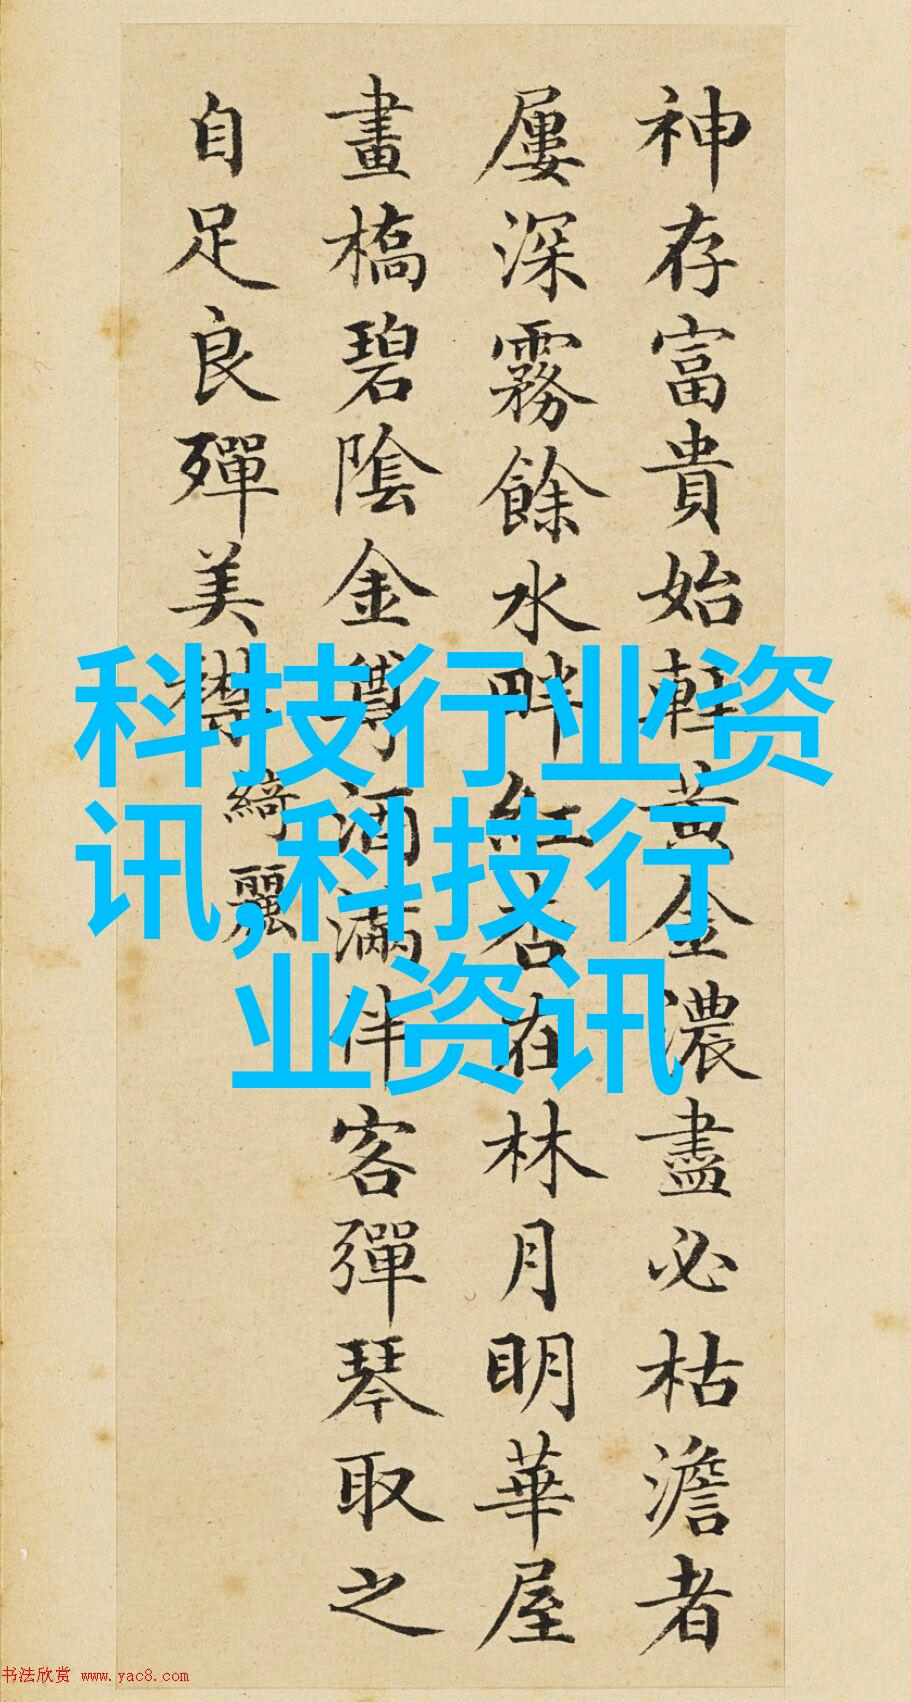 神存富貴始輕黃金濃盡必枯澹者
屢深霧餘水畔紅杏在林月明華屋
畫橋碧陰金酒滿伴客彈琴取之
自足良殫美襟
綺麗
科技行业资
讯,科技行
业资讯
书法欣赏 www.yac8.com